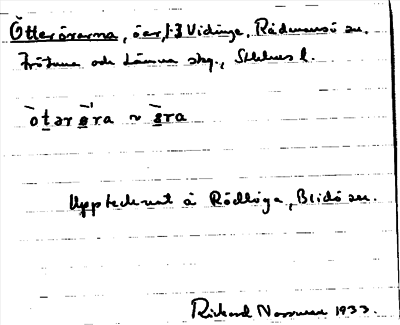 Ötterörarna, öar, f. 3 Vidinge, Rådmansö sn.
Frötuna och Länna skg., Sthlms l.
ōt̲ər ø̲̄ra ~ ø̲̄ra
Upptecknat å Rödlöga, Blidö sn.
Rickard 1933.